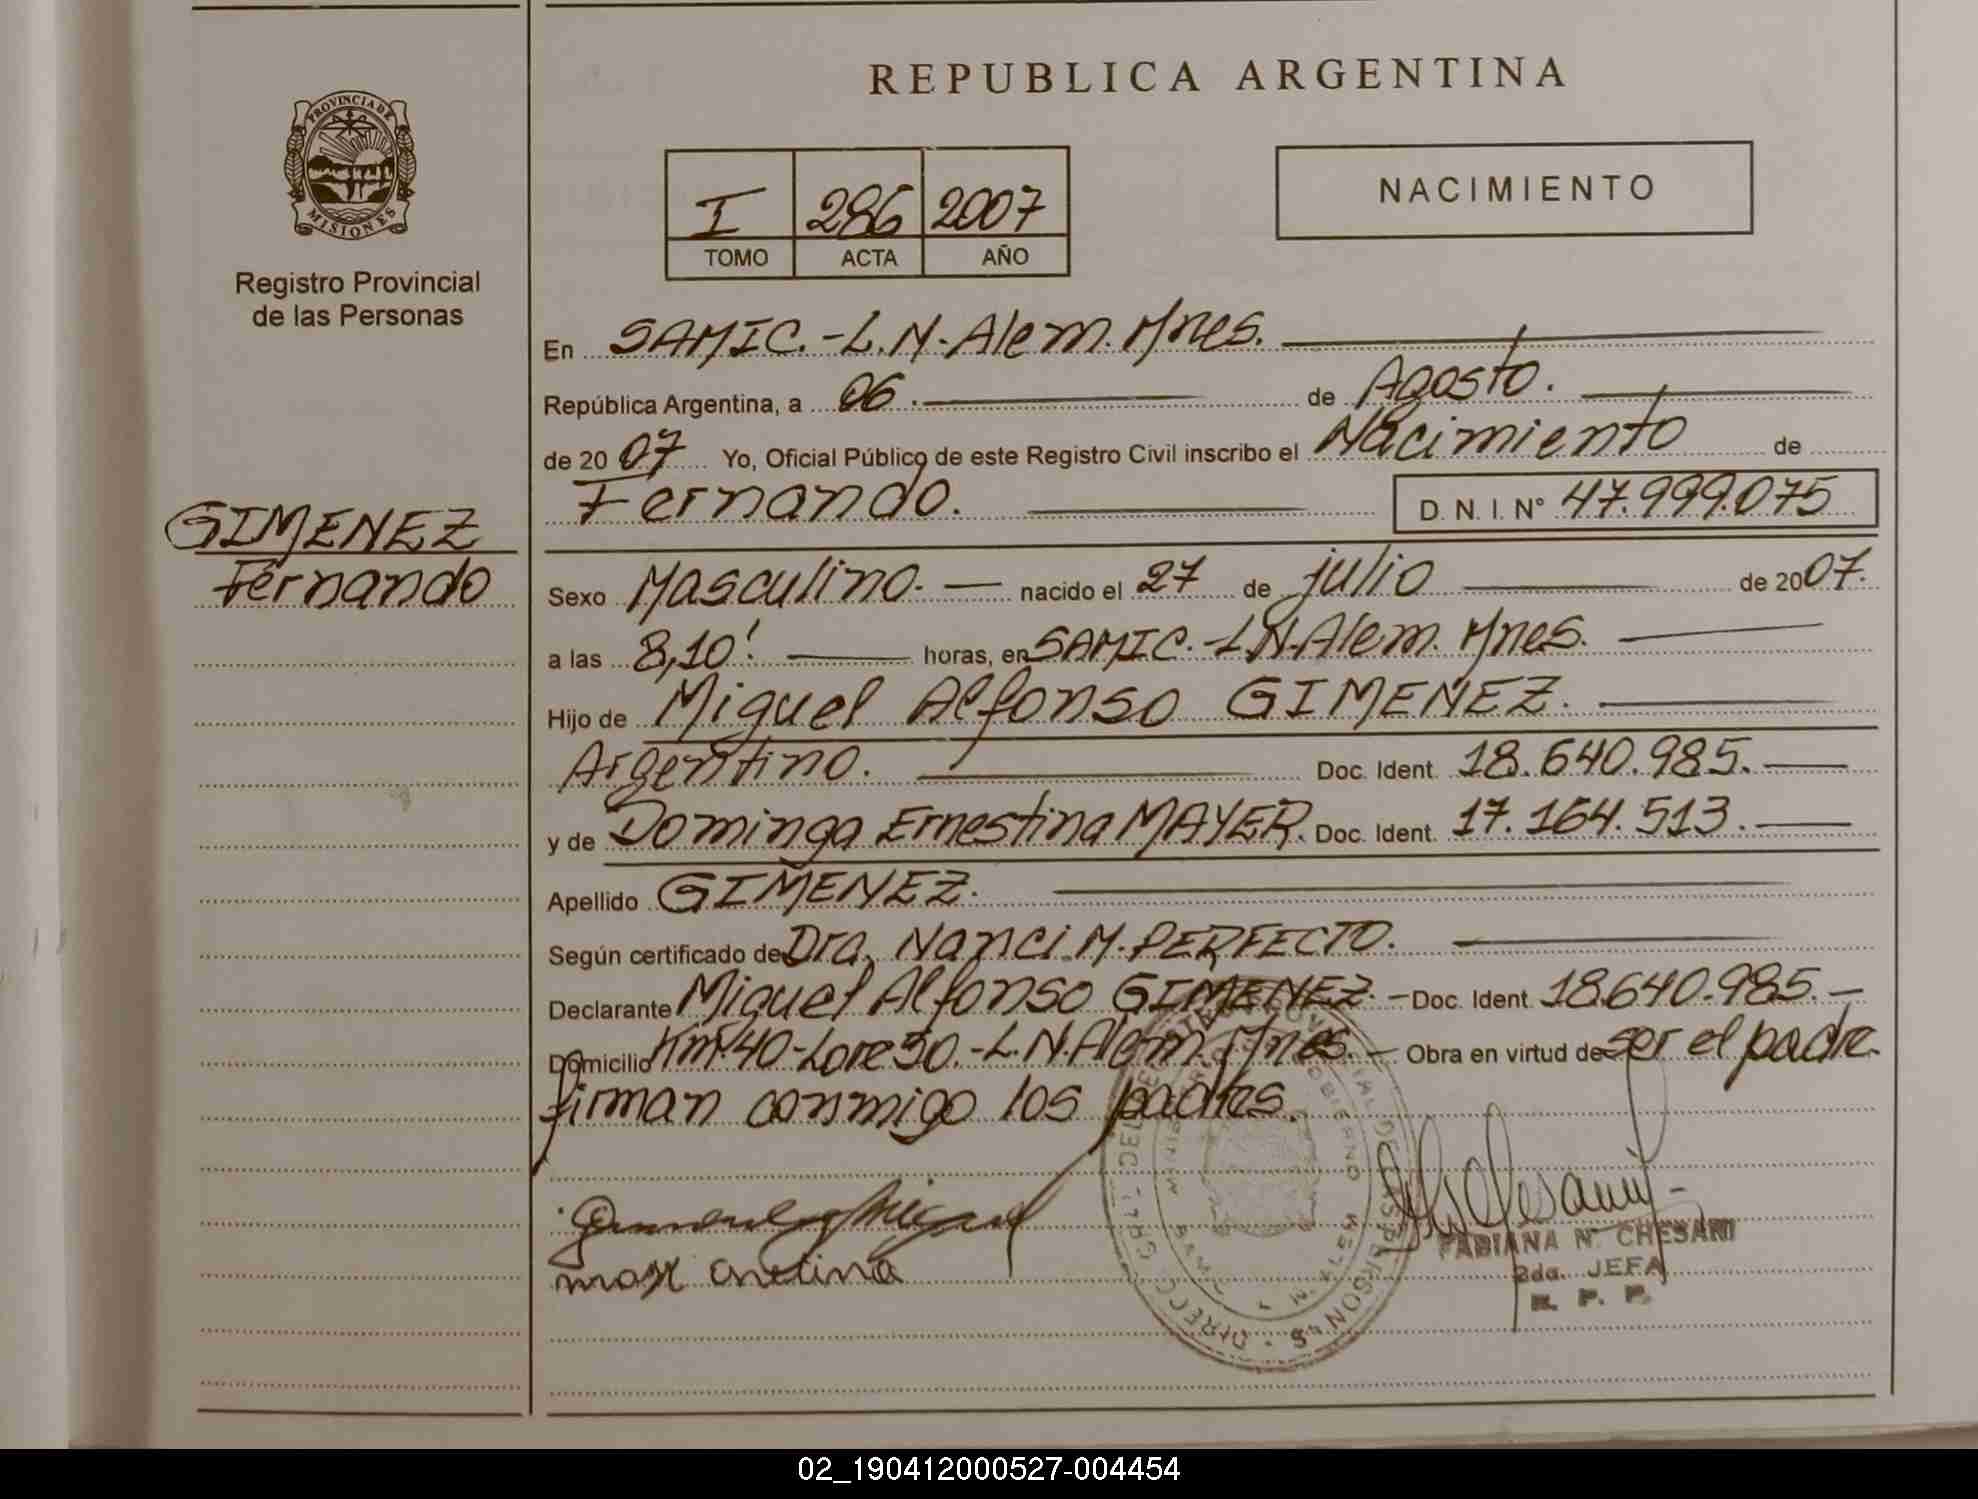 REPUBLICA ARGENTINA
PROVINCIA DE
MISIONES
Registro Provincial
de las Personas
NACIMIENTO
I 286 2007
TOMO ACTA AÑO
En SAMIC.-L.N.Alem.Mnes.
República Argentina, a 06. de Agosto.
de 2007 Yo, Oficial Público de este Registro Civil inscribo el Nacimiento de
Fernando. D. N. I. Nº 47.999.075
GIMENEZ
Fernando
Sexo Masculino.- nacido el 27 de julio de 2007.
a las 8,10' horas, en SAMIC.-L.N.Alem. Mnes.
Hijo de Miguel Alfonso GIMENEZ.
Argentino. Doc. Ident. 18.640.985.
y de Dominga Ernestina MAYER. Doc. Ident. 17.164.513.
Apellido GIMENEZ.
Según certificado de Dra. Nanci.M.PERFECTO.
Declarante Miguel Alfonso GIMENEZ.- Doc. Ident. 18.640.985.-
Domicilio Km.40-Lote 30.-L.N.Alem.Mnes.- Obra en virtud de ser el padre.
firman conmigo los padres.
FABIANA N. CHESANI
2da. JEFA
R. P. P.
02_190412000527-004454